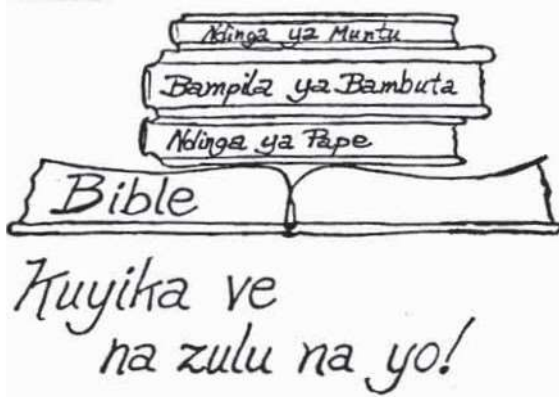 Ndinga ya Muntu
Bampila ya Bambuta
Ndinga ya Pape
Bible
Kuyika ve
na zulu na yo!